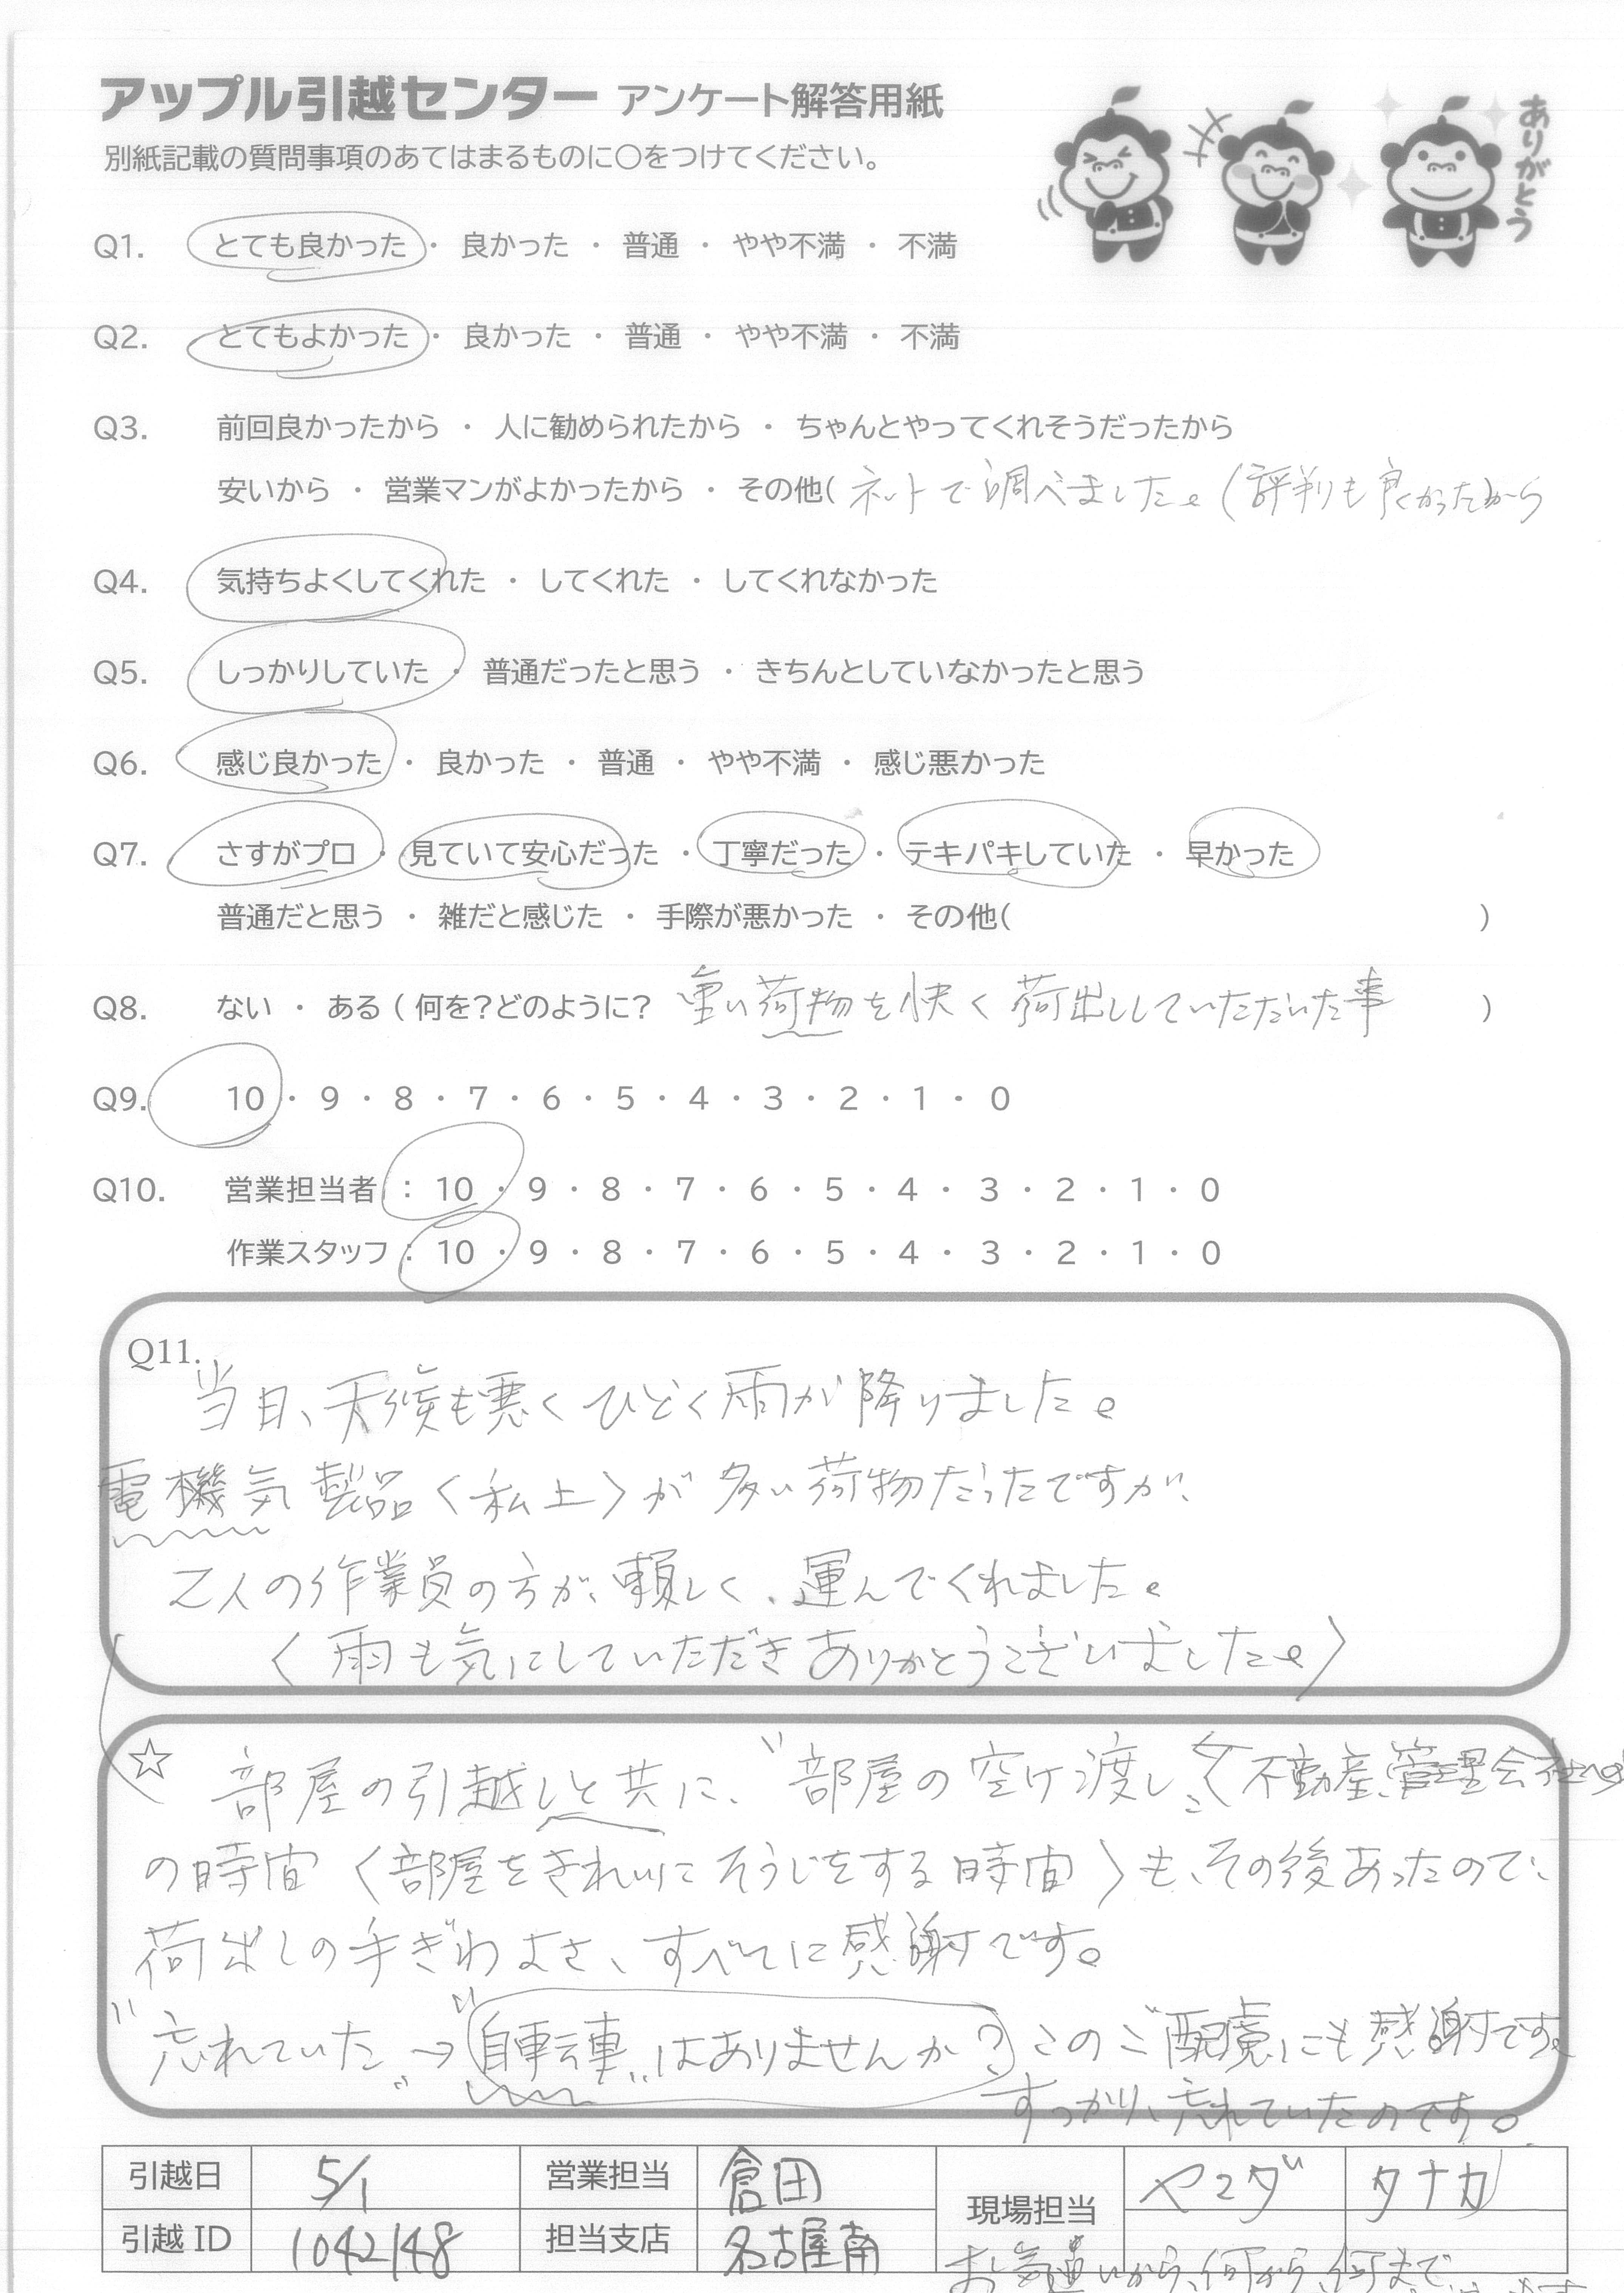 アップル引越センター アンケート解答用紙
ありがとう
別紙記載の質問事項のあてはまるものに○をつけてください。
Q1. とても良かった ・ 良かった ・ 普通 ・ やや不満 ・ 不満
Q2. とてもよかった ・ 良かった ・ 普通 ・ やや不満 ・ 不満
Q3. 前回良かったから ・ 人に勧められたから ・ ちゃんとやってくれそうだったから
安いから ・ 営業マンがよかったから ・ その他( ネットで調べました。(評判も良くかったから
Q4. 気持ちよくしてくれた ・ してくれた ・ してくれなかった
Q5. しっかりしていた ・ 普通だったと思う ・ きちんとしていなかったと思う
Q6. 感じ良かった ・ 良かった ・ 普通 ・ やや不満 ・ 感じ悪かった
Q7. さすがプロ ・ 見ていて安心だった ・ 丁寧だった ・ テキパキしていた ・ 早かった
普通だと思う ・ 雑だと感じた ・ 手際が悪かった ・ その他( )
Q8. ない ・ ある ( 何を?どのように? 重い荷物を快く荷出ししていただいた事 )
Q9. 10 ・ 9 ・ 8 ・ 7 ・ 6 ・ 5 ・ 4 ・ 3 ・ 2 ・ 1 ・ 0
Q10. 営業担当者 : 10 ・ 9 ・ 8 ・ 7 ・ 6 ・ 5 ・ 4 ・ 3 ・ 2 ・ 1 ・ 0
作業スタッフ : 10 ・ 9 ・ 8 ・ 7 ・ 6 ・ 5 ・ 4 ・ 3 ・ 2 ・ 1 ・ 0
Q11.
当日、天候も悪くひどく雨が降りました。
電機気製品〈私上〉が多い荷物だったですが、
2人の作業員の方が、頼しく、運んでくれました。
〈雨も気にしていただきありがとうございました。〉
☆ 部屋の引越しと共に、"部屋の空け渡し"〈不動産、管理会社への
の時間〈部屋をきれいにそうじをする時間〉も、その後あったので、
荷出しの手ぎわよさ、すべてに感謝です。
"忘れていた"→"自転車"はありませんか?このご配慮にも感謝です。
すっかり、忘れていたのです。
引越日 5/1 営業担当 倉田 現場担当 ヤマダ タナカ
引越ID 1042148 担当支店 名古屋南
お気遣いから、何から、何まで